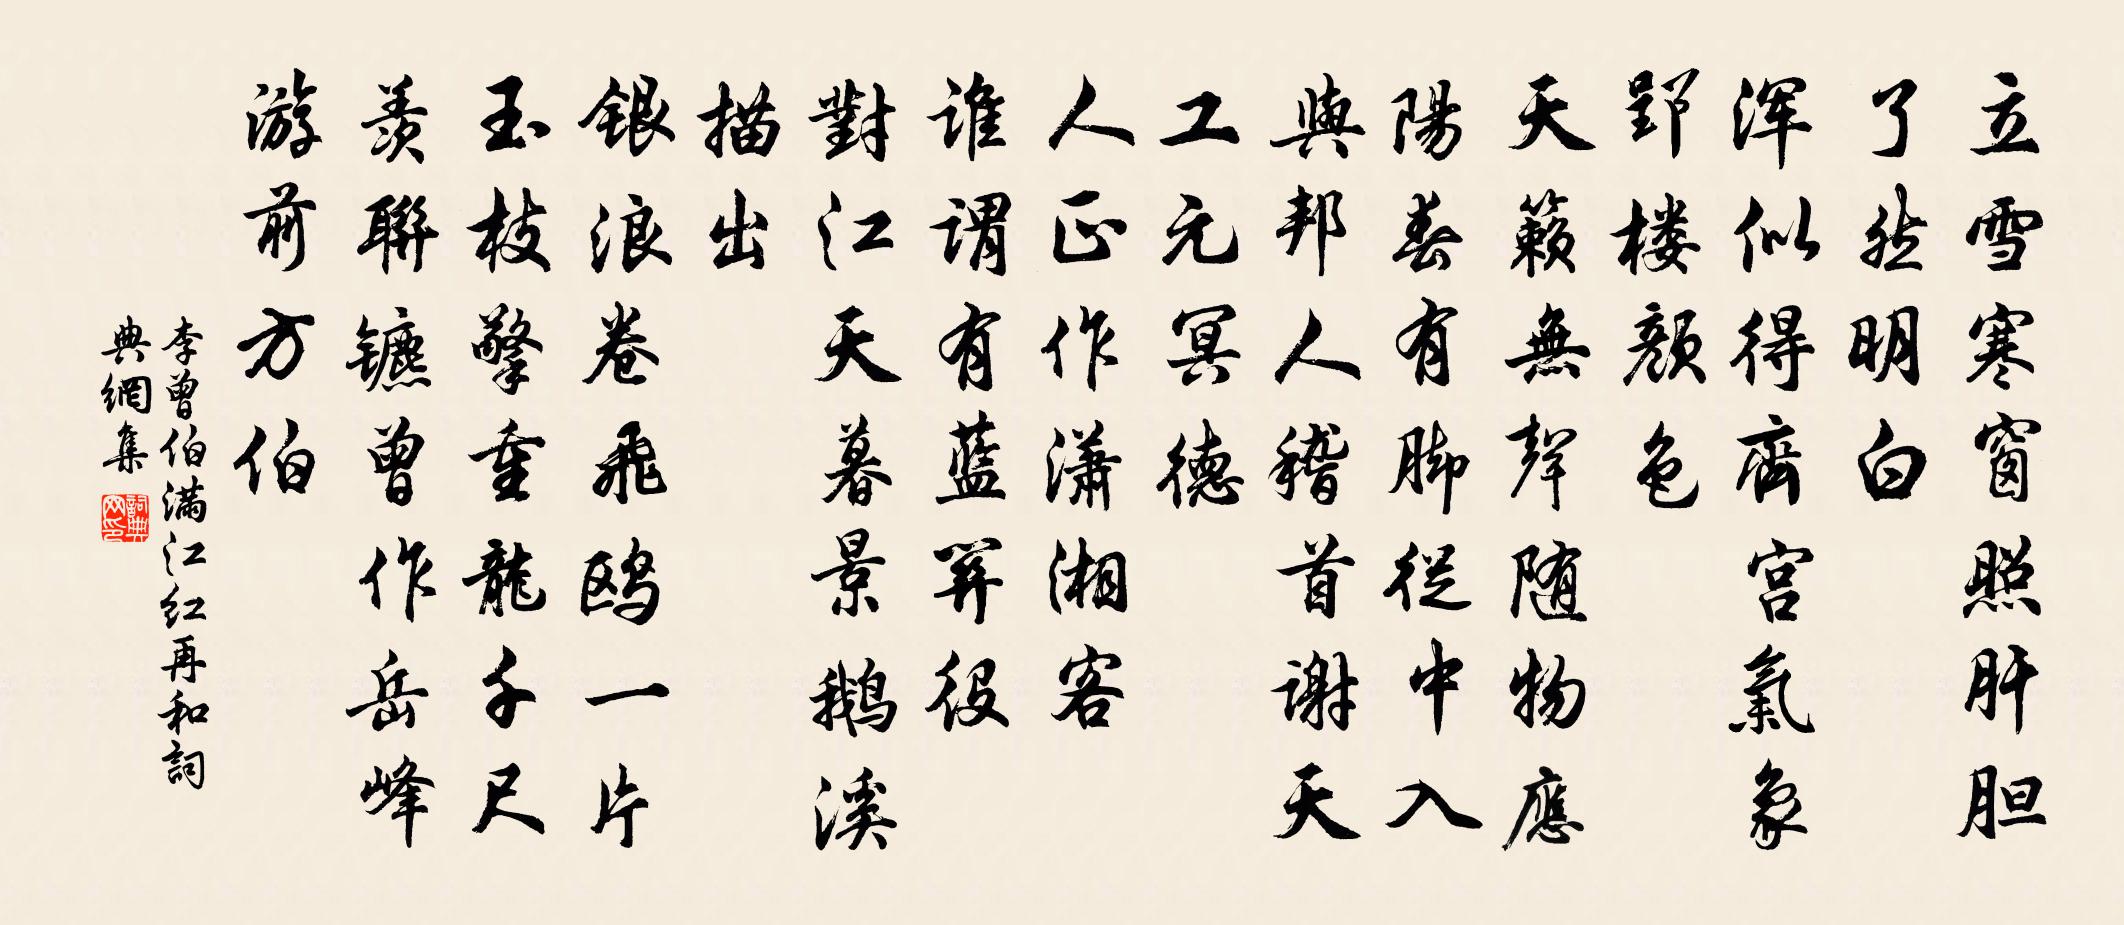 立雪寒窗照肝胆
了然明白
浑似得齊宫氣象
郢楼颜色
天籁無聲随物應
陽春有脚從中入
與邦人稽首謝天
工元冥德
人正作潇湘客
谁谓有蓝關役
對江天暮景鹅溪
描出
银浪卷飛鸥一片
玉枝擎重龍千尺
羡聯镳曾作岳峰
游前方伯
李曾伯满江红再和詞
典網集
詞典网印